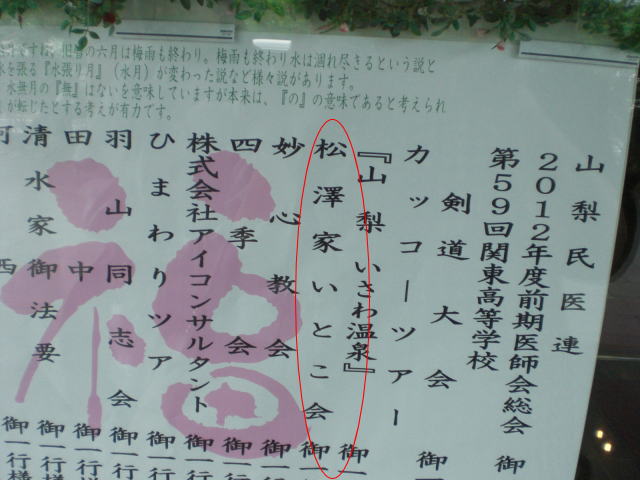 旧暦の六月は梅雨も終わり。梅雨も終わり水は涸れ尽きるという説と
を張る『水張り月』（水月）が変わった説など様々説があります。
水無月の『無』はないを意味していますが本来は、『の』の意味であると考えられ
が転じたとする考えが有力です。
山梨民医連
2012年度前期医師会総会 御
第59回関東高等学校
剣道大会 御
カッコーツアー
『山梨いさわ温泉』 御一
松澤家いとこ会 御一
妙心教会 御一行
四季会 御一行
株式会社アイコンサルタント 御一行
ひまわりツアー 御一行
羽山同志会 御一行
田中 御一行様
清水家御法要 御一行様
西 御一行様